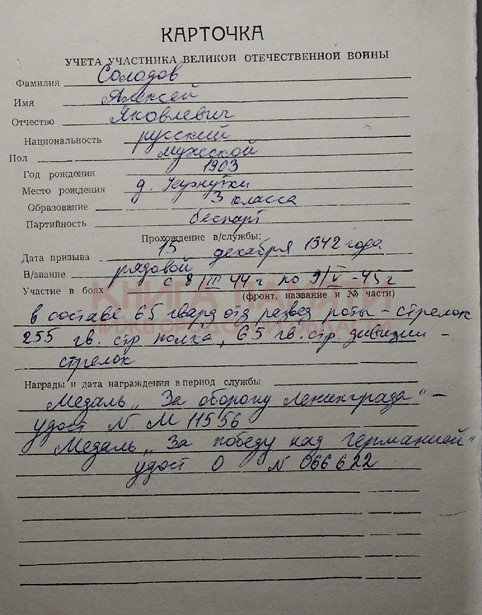 КАРТОЧКА
УЧЕТА УЧАСТНИКА ВЕЛИКОЙ ОТЕЧЕСТВЕННОЙ ВОЙНЫ
Фамилия Солодов
Имя Алексей
Отчество Яковлевич
Национальность русский
Пол мужской
Год рождения 1903
Место рождения д.
Образование 3 класса
Партийность беспарт
Прохождение в/службы:
Дата призыва 15 декабря 1942 года
В/звание рядовой
Участие в боях с 8/III 44 г по 9/V-45 г
(фронт, название и № части)
КНИГА ПАМЯТИ
НИЖЕГОРОДСКОЙ ОБЛАСТИ
в составе 65 гвард отд развед роты - стрелок
255 гв. стр полка, 65 гв. стр. дивизии -
стрелок
Награды и дата награждения в период службы
Медаль „За оборону Ленинграда" -
удост N М 11556
Медаль „За победу над Германией"
удост О N 066622